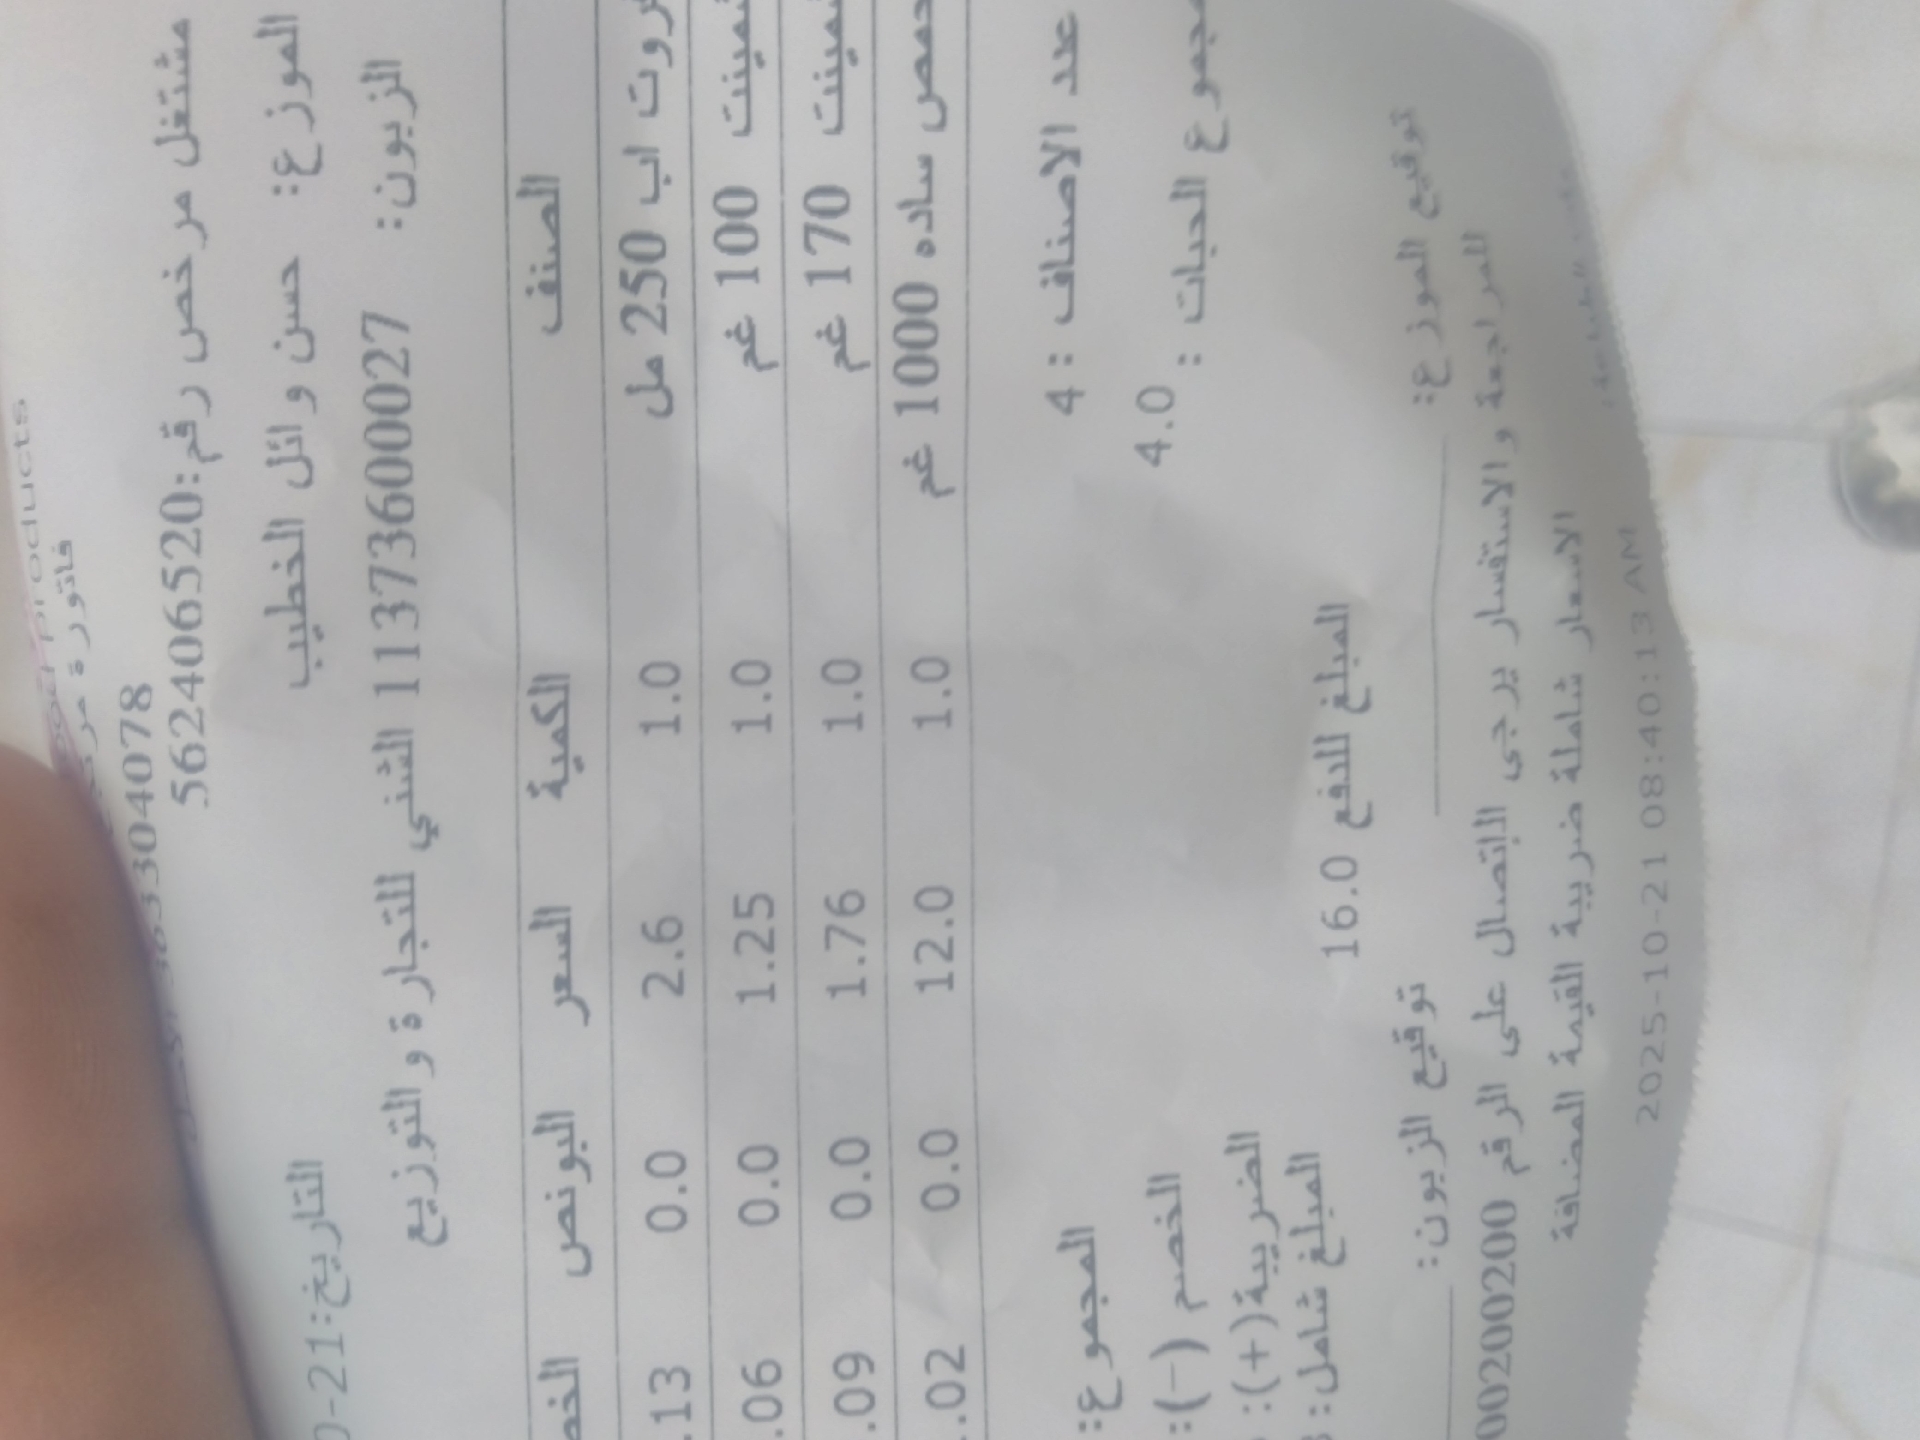 products
فاتورة
562406520
مشتغل مرخص رقم:562406520
الموزع: حسن وائل الخطيب
التاريخ:21-0
الزبون: 113736000027 الشني للتجارة و التوزيع
الصنف الكمية السعر البونص الخص
روت اب 250 مل 1.0 2.6 0.0 .13
مينت 100 غم 1.0 1.25 0.0 .06
مينت 170 غم 1.0 1.76 0.0 .09
حمص ساده 1000 غم 1.0 12.0 0.0 .02
عدد الاصناف : 4
المجموع:
مجموع الحبات : 4.0
الخصم (-):
الضريبة(+):
المبلغ للدفع 16.0
المبلغ شامل:
توقيع الموزع:
توقيع الزبون:
للمراجعة و الاستفسار يرجى الاتصال على الرقم 00200200
الاسعار شاملة ضريبة القيمة المضافة
2025-10-21 08:40:13 AM